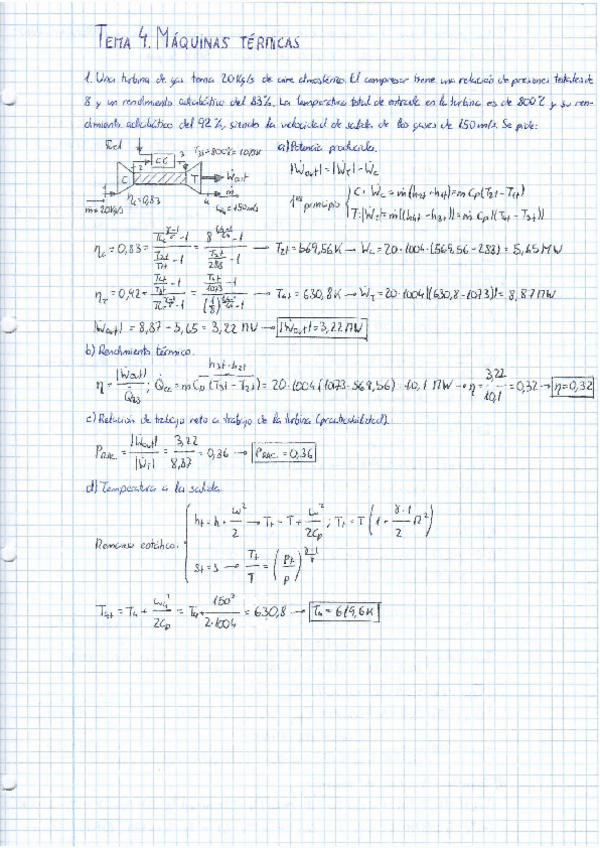 TEMA 4. MÁQUINAS TÉRMICAS
1. Una turbina de gas toma 20 Kg/s de aire atmosférico. El compresor tiene una relación de presiones totales de
8 y un rendimiento adiabático del 83%. La temperatura total de entrada en la turbina es de 800°C y su ren-
dimiento adiabático del 92%, siendo la velocidad de salida de los gases de 150 m/s. Se pide:
Fuel T3t=800°C=1073K
a) Potencia producida.
2 CC 3
C T Ẇout
1 4
ṁ=20Kg/s ηc=0,83 ω4=150m/s ṁ
|Ẇout| = |ẆT| - Ẇc
1er principio { C: Ẇc = ṁ(h2t-h1t) = ṁ Cp(T2t-T1t)
T: |ẆT| = ṁ|(h4t-h3t)| = ṁ Cp|(T4t-T3t)|
ηc = 0,83 = (πc^((γ-1)/γ) - 1)/(T2t/T1t - 1) = (8^((γ-1)/γ) - 1)/(T2t/288 - 1) → T2t = 569,56K → Ẇc = 20·1004·(569,56-288) = 5,65 MW
ηT = 0,92 = (T4t/T3t - 1)/(πT^((γ-1)/γ) - 1) = (T4t/1073 - 1)/((1/8)^((γ-1)/γ) - 1) → T4t = 630,8K → ẆT = 20·1004|(630,8-1073)| = 8,87 MW
|Ẇout| = 8,87 - 5,65 = 3,22 MW → |Ẇout| = 3,22 MW
b) Rendimiento térmico.
η = |Ẇout|/Q̇23 ; Q̇cc = ṁ Cp (T3t-T2t) = 20·1004(1073-569,56) = 10,1 MW → η = 3,22/10,1 = 0,32 → η = 0,32
h3t-h2t
c) Relación de trabajo neto a trabajo de la turbina (practicabilidad).
PRAC. = |Ẇout|/|ẆT| = 3,22/8,87 = 0,36 → PRAC. = 0,36
d) Temperatura a la salida
Remanso isotálico. { ht = h + ω²/2 → Tt = T + ω²/2Cp ; Tt = T(1 + (γ-1)/2 M²)
st = s → Tt/T = (Pt/P)^((γ-1)/γ)
T4t = T4 + ω4²/2Cp = T4 + 150²/2·1004 = 630,8 → T4 = 619,6K